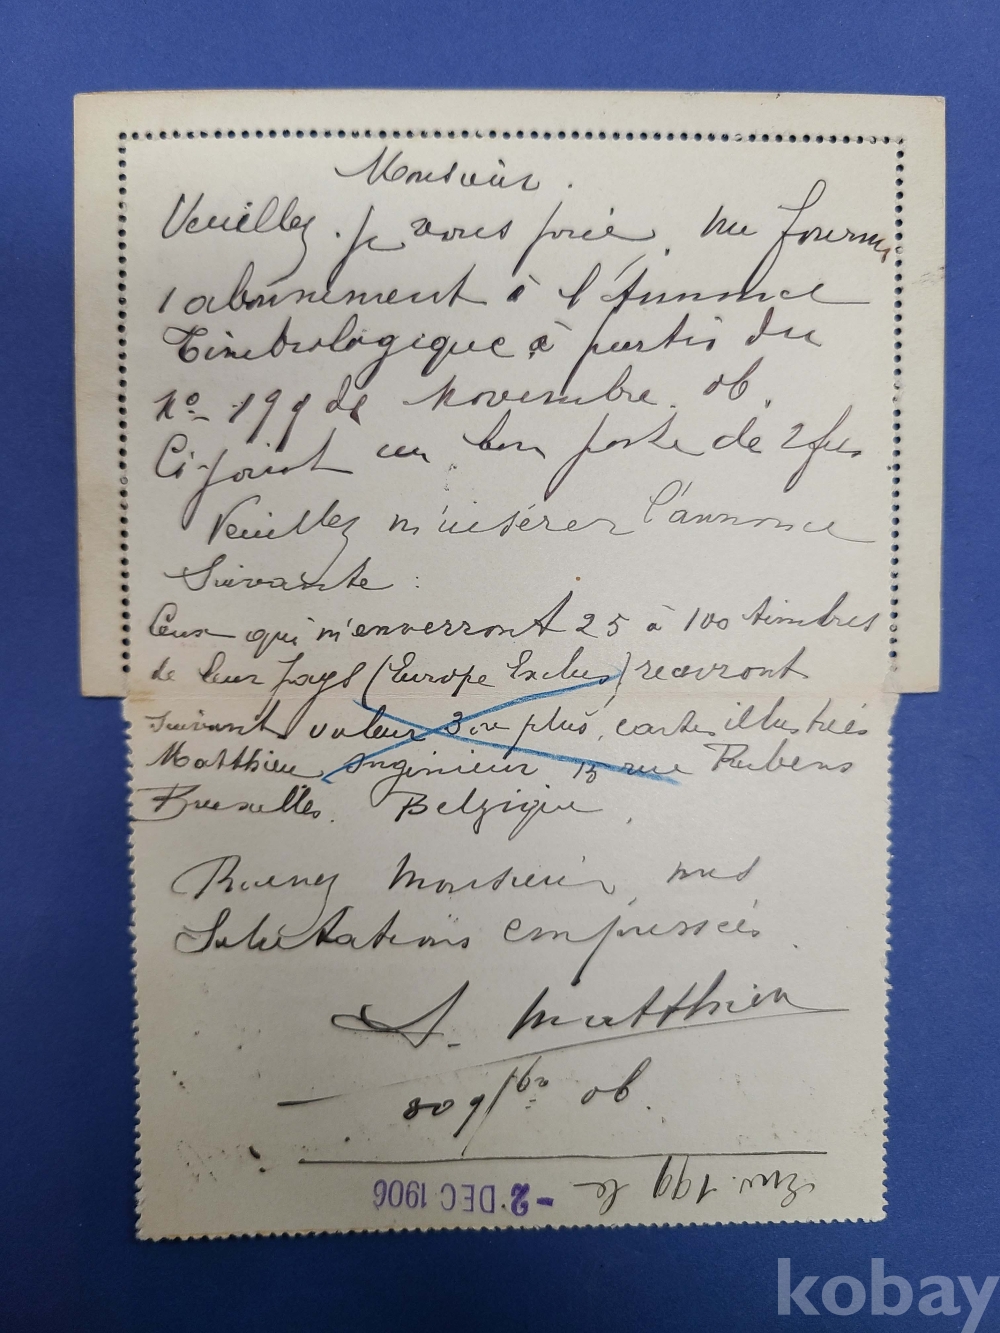 Monsieur.
Veuillez, je vous prie, me fournir
1 abonnement à l'Annonce
Timbrologique à partir du
No 199 de Novembre 06.
Ci-joint un bon poste de 2 frs
Veuillez m'insérer l'annonce
Suivante :
Ceux qui m'enverront 25 à 100 timbres
de leur pays (Europe Exclus) recevront
suivant valeur 3 ou plus, cartes illustrées
Matthieu, Ingénieur 13 rue Rubens
Bruxelles. Belgique.
Recevez Monsieur mes
Salutations empressées.
A. Matthieu
— 30 9bre 06.
Env. 199 le
-2 DEC 1906
kobay